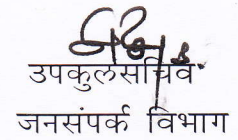 उपकुलसचिव
जनसंपर्क विभाग